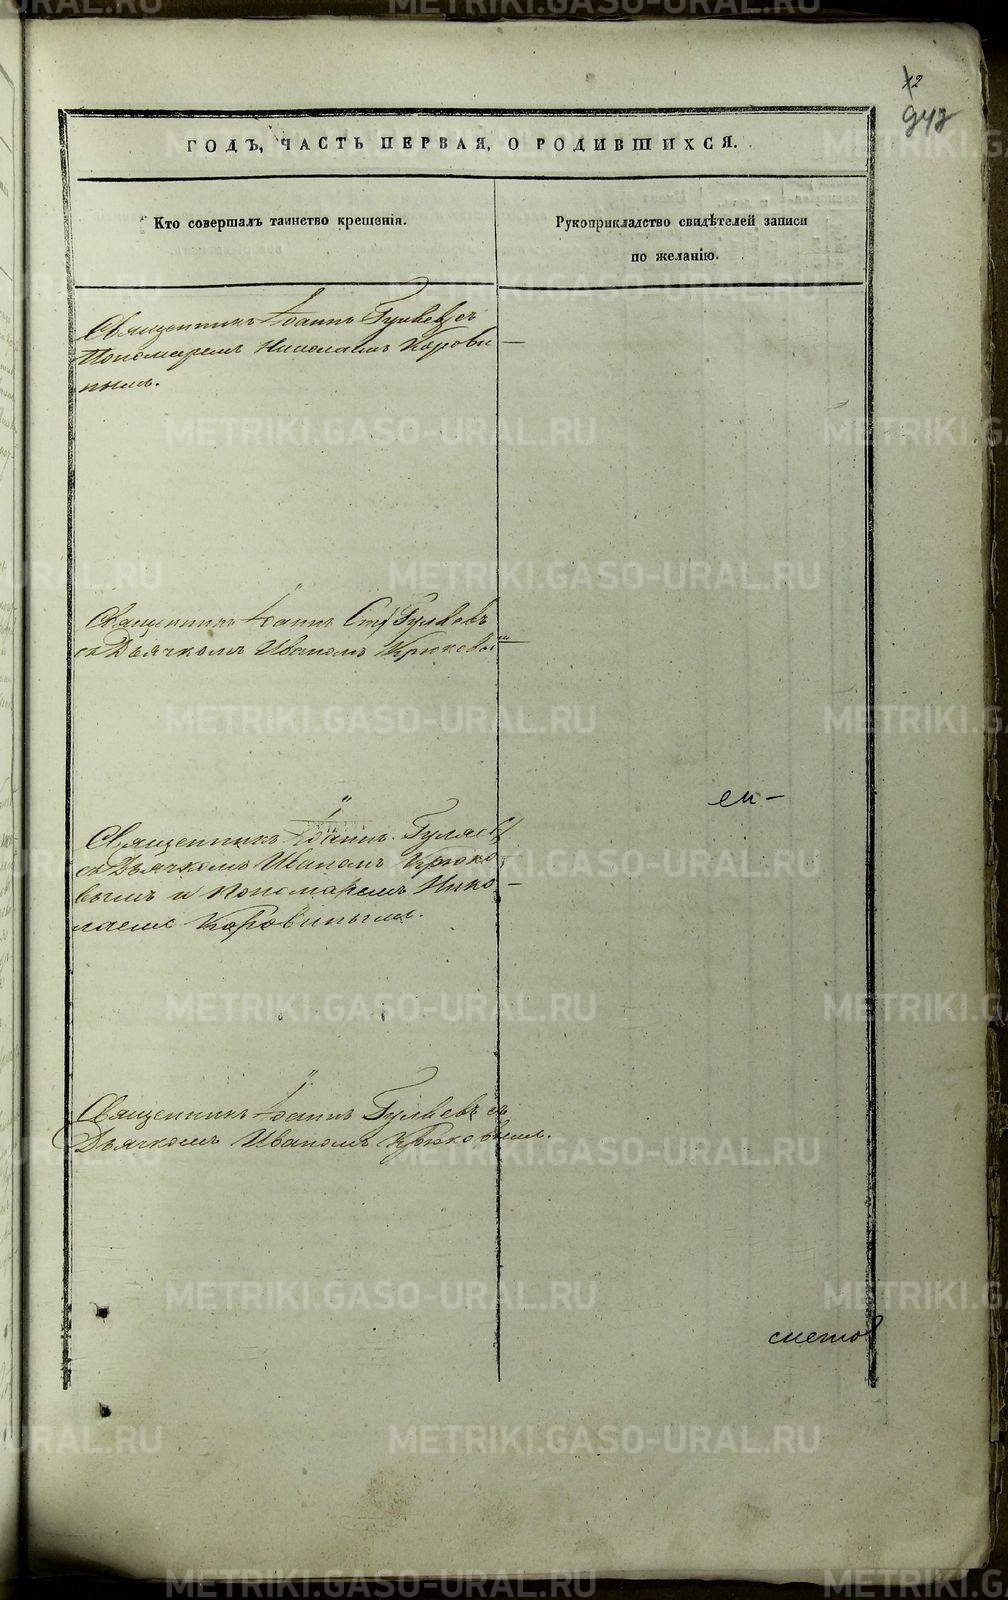 12
942
ГОДЪ, ЧАСТЬ ПЕРВАЯ, О РОДИВШИХСЯ.
Кто совершалъ таинство крещенія.
Рукоприкладство свидѣтелей записи
по желанію.
Священникъ Іоаннъ Гуляевъ съ
Пономаремъ Николаемъ Корови
нымъ.
Священникъ Іоаннъ Стеф Гуляевъ
съ Дьячкомъ Иваномъ Крюковы
Священникъ Іоаннъ Гуляевъ
съ Дьячкомъ Иваномъ Крюко
вымъ и Пономаремъ Нико
лаемъ Коровинымъ.
Священникъ Іоаннъ Гуляевъ съ
Дьячкомъ Иваномъ Крюковымъ.
METRIKI.GASO-URAL.RU